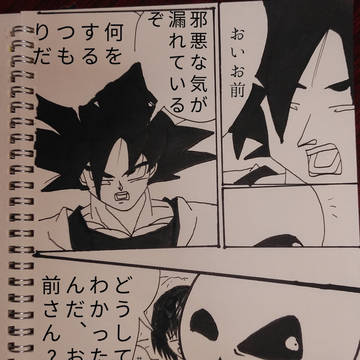 おいお前
邪悪な気が
漏れている
ぞ
何を
する
つも
りだ
どうして
わかった
んだ、お
前さん?